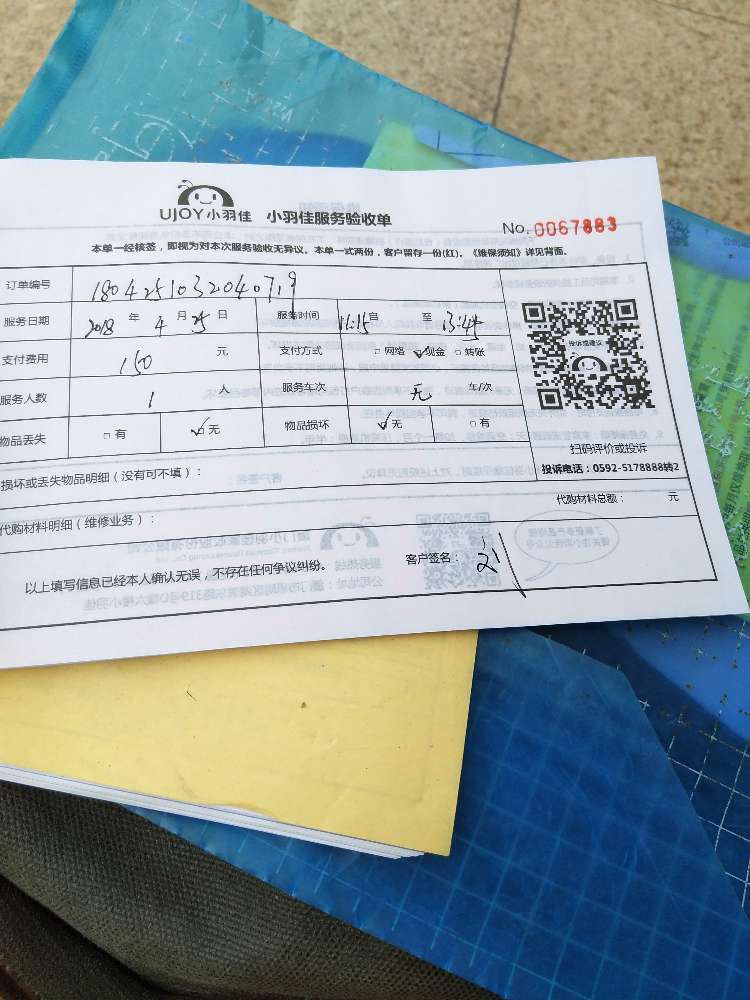 UJOY小羽佳 小羽佳服务验收单
No. 0067883
本单一经核签，即视为对本次服务验收无异议。本单一式两份，客户留存一份(红)。《维保须知》详见背面。
订单编号 1804251032040719
服务日期 2018 年 4 月 25 日 服务时间 11:15 自 至 13:45
支付费用 150 元 支付方式 □ 网络 ☑ 现金 □ 转账
服务人数 1 人 服务车次 无 车/次
物品丢失 □ 有 ☑ 无 物品损坏 ☑ 无 □ 有
投诉或建议
扫码评价或投诉
投诉电话：0592-5178888转2
损坏或丢失物品明细（没有可不填）：
代购材料明细（维修业务）： 代购材料总额： 元
以上填写信息已经本人确认无误，不存在任何争议纠纷。 客户签名：刘